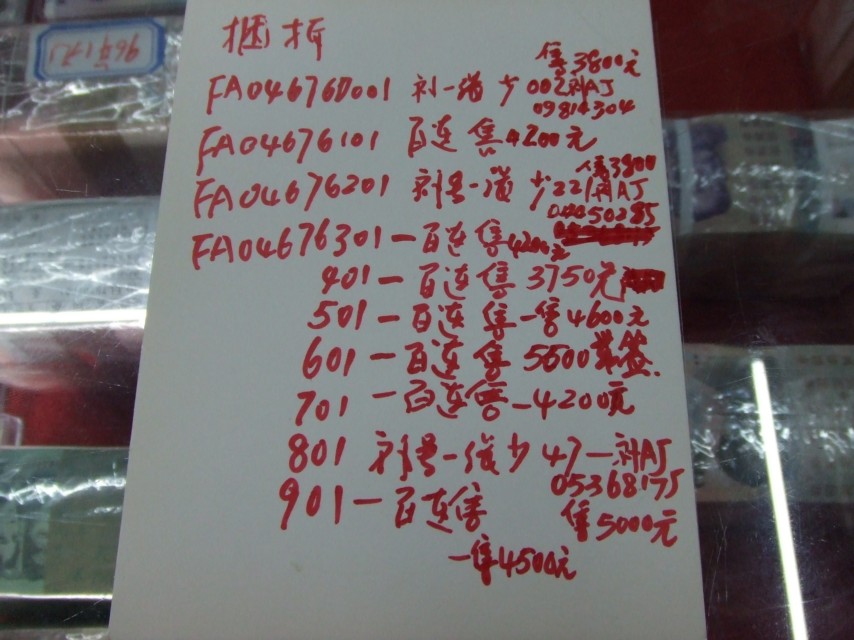 捆拆
售3800元
FA04676001 补一张少002补AJ
09814304
FA04676101 百连售4200元
售3800
FA04676201 补号一张少221补AJ
FA04676301一百连售4200元
401一百连售3750元
501一百连售一售4600元
601一百连售5600带签
701一百连售一4200元
801 补号一张少47一补AJ
05368175
901一百连售 售5000元
一售4500元